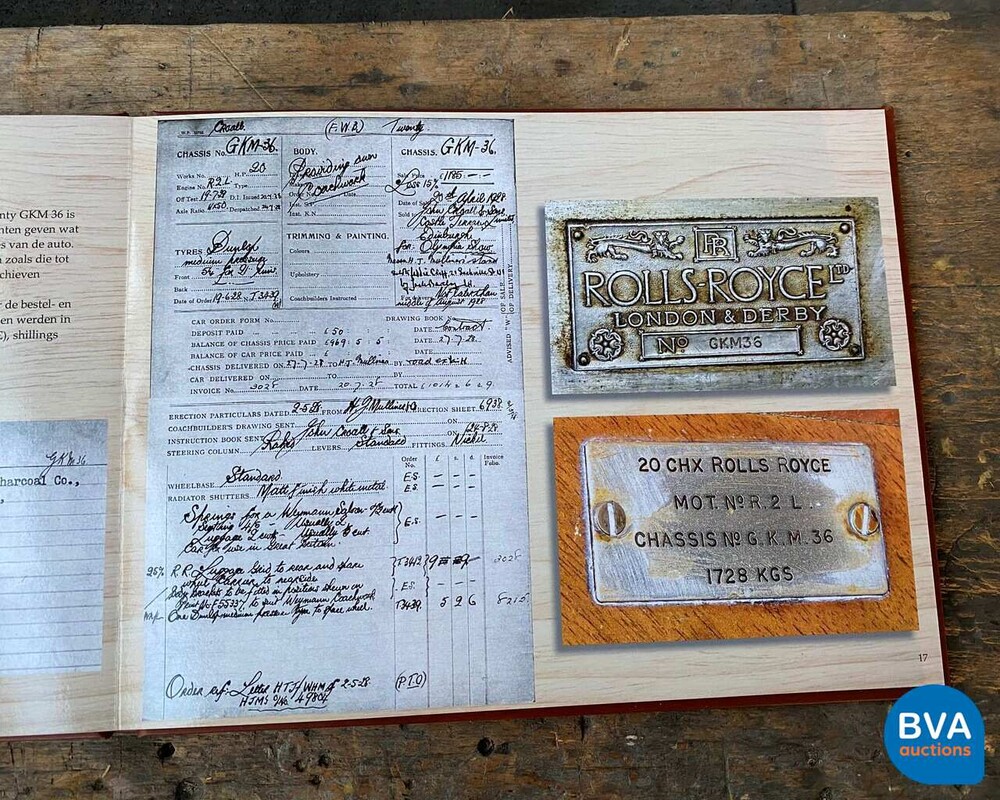 nty GKM 36 is
nten geven wat
es van de auto.
n zoals die tot
chieven
r de bestel- en
en werden in
E), shillings
GKM 36
harcoal Co.,
Croall. (F.W.B.) Twenty.
CHASSIS No. GKM-36.
Works No. H.P. 20
Engine No. R2L Type
Off Test 19-7-28 D.I. Issued
Axle Ratio Despatched
TYRES Dunlop
medium pressure
Front
Back
Date of Order 19-6-28
BODY.
Providing own
Coachwork
TRIMMING & PAINTING.
Colours
Upholstery
Coachbuilders Instructed
CHASSIS. GKM-36.
Sale Price £1185 - -
Less 15%
Date of Sale 20th April 1928
Sold John Croall & Sons
Castle Terrace
Edinburgh
for Olympia Show
middle of August 1928
ADVISED "W." OF SALE. OF DELIVERY
CAR ORDER FORM No. DRAWING BOOK
DEPOSIT PAID £50 DATE Contract
BALANCE OF CHASSIS PRICE PAID £969 : 5 : 5 DATE 27-7-28
BALANCE OF CAR PRICE PAID £ DATE
CHASSIS DELIVERED ON 27-7-28 TO H.J. Mulliner BY
CAR DELIVERED ON TO BY
INVOICE No. 2028 DATE 20.7.28 TOTAL £1014
ERECTION PARTICULARS DATED 2-5-28 FROM H.J. Mulliner & Co ERECTION SHEET 6938
COACHBUILDER'S DRAWING SENT ON
INSTRUCTION BOOK SENT John Croall & Sons ON
STEERING COLUMN Raked LEVERS Standard FITTINGS Nickel
Order No. £ s. d. Invoice Folio.
WHEELBASE Standard E.S. - - -
RADIATOR SHUTTERS Matt finish white metal E.S. - - -
Springs for a Weymann Saloon
Seating 4/5 - Usually 2 E.S. - - -
Luggage 2 cwt - Usually
Car for use in Great Britain.
25% R.R. Luggage Grid to rear and spare 2028
wheel carrier to nearside
Body brackets to be fitted in positions shewn on E.S. - - -
to suit Weymann Coachwork
One Dunlop medium pressure tyre to spare wheel. 5 2 6 8215
Order ref: Letter HTJ/WHM of 2-5-28 (P.T.O)
HJM's O/No. 4980
RR
ROLLS-ROYCE LTD
LONDON & DERBY
No GKM36
20 CHX ROLLS ROYCE
MOT. No R. 2 L.
CHASSIS No G. K. M. 36
1728 KGS
17
BVA
auctions